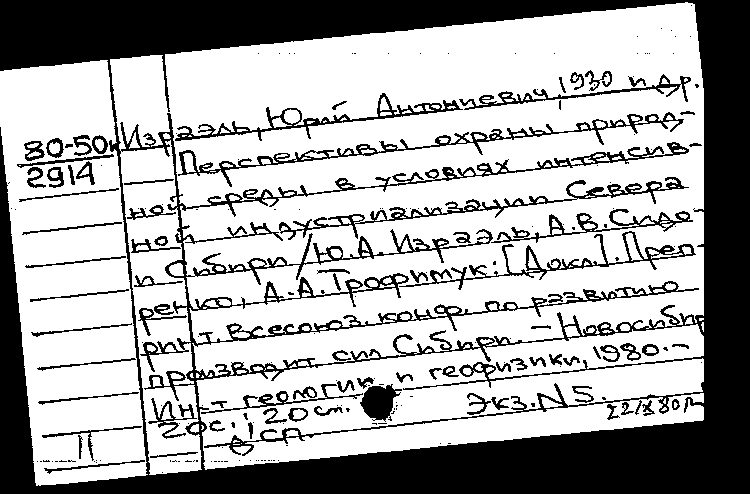 80-50к
2914
Израэль, Юрий Антониевич, 1930 и др.
Перспективы охраны природ-
ной среды в условиях интенсив-
ной индустриализации Севера
и Сибири / Ю.А. Израэль, А.В. Сидо-
ренко, А.А. Трофимук: [Докл.]. Преп-
ринт. Всесоюз. конф. по развитию
производит. сил Сибири. - Новосибир
Ин-т геологии и геофизики, 1980. -
20 с.; 20 см. Экз. N 5.
сп. 22/X 80
11